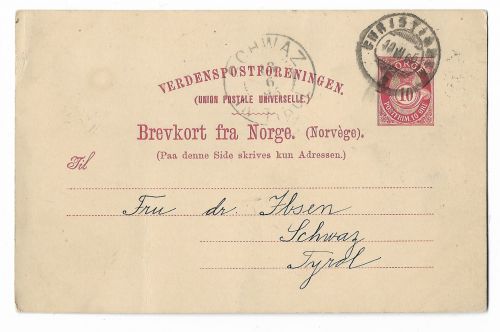 SCHWAZ
CHRISTIANIA
NORGE
10
POSTFRIM 10 ØRE
VERDENSPOSTFORENINGEN.
(UNION POSTALE UNIVERSELLE.)
Brevkort fra Norge. (Norvège).
(Paa denne Side skrives kun Adressen.)
Til
Fru dr. Ibsen
Schwaz
Tyrol